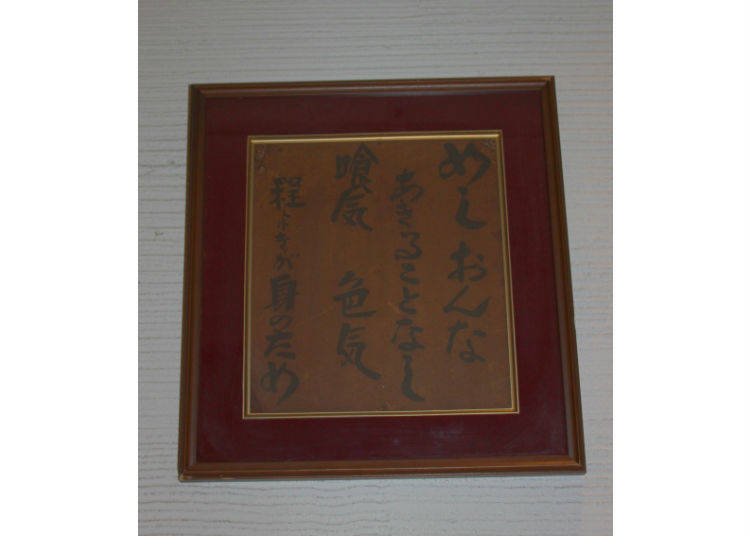 めしおんな
あきることなし
喰気　色気
程よきが身のため